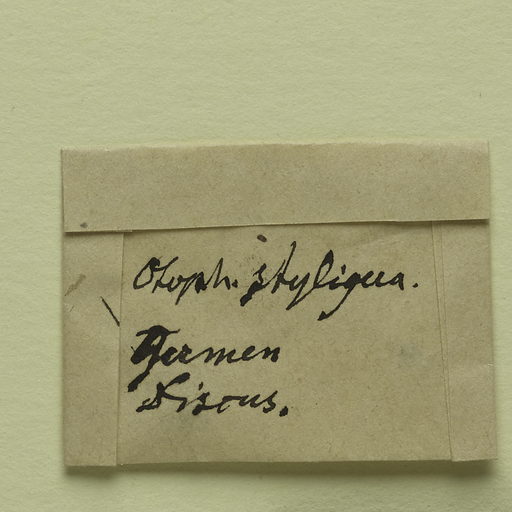 Otoph. styligera.
Germen
Discus.